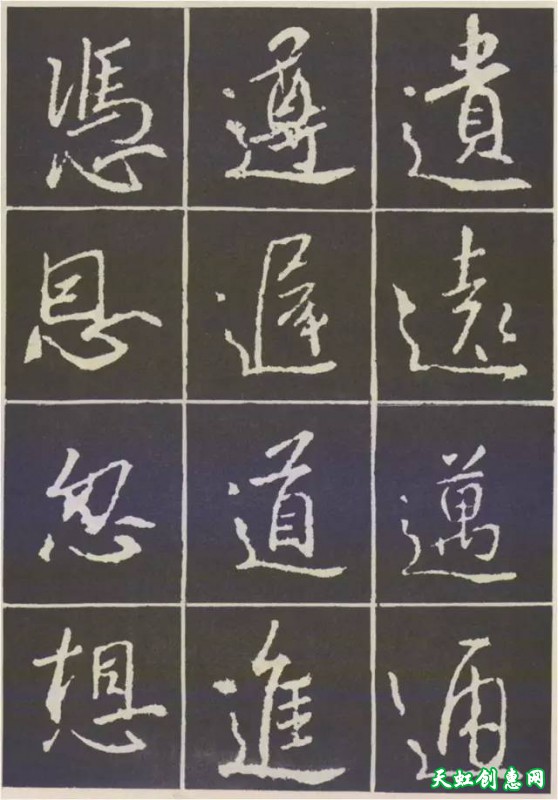 遺遠邁通
遵遲道進
憑恩忽想
天虹创惠网